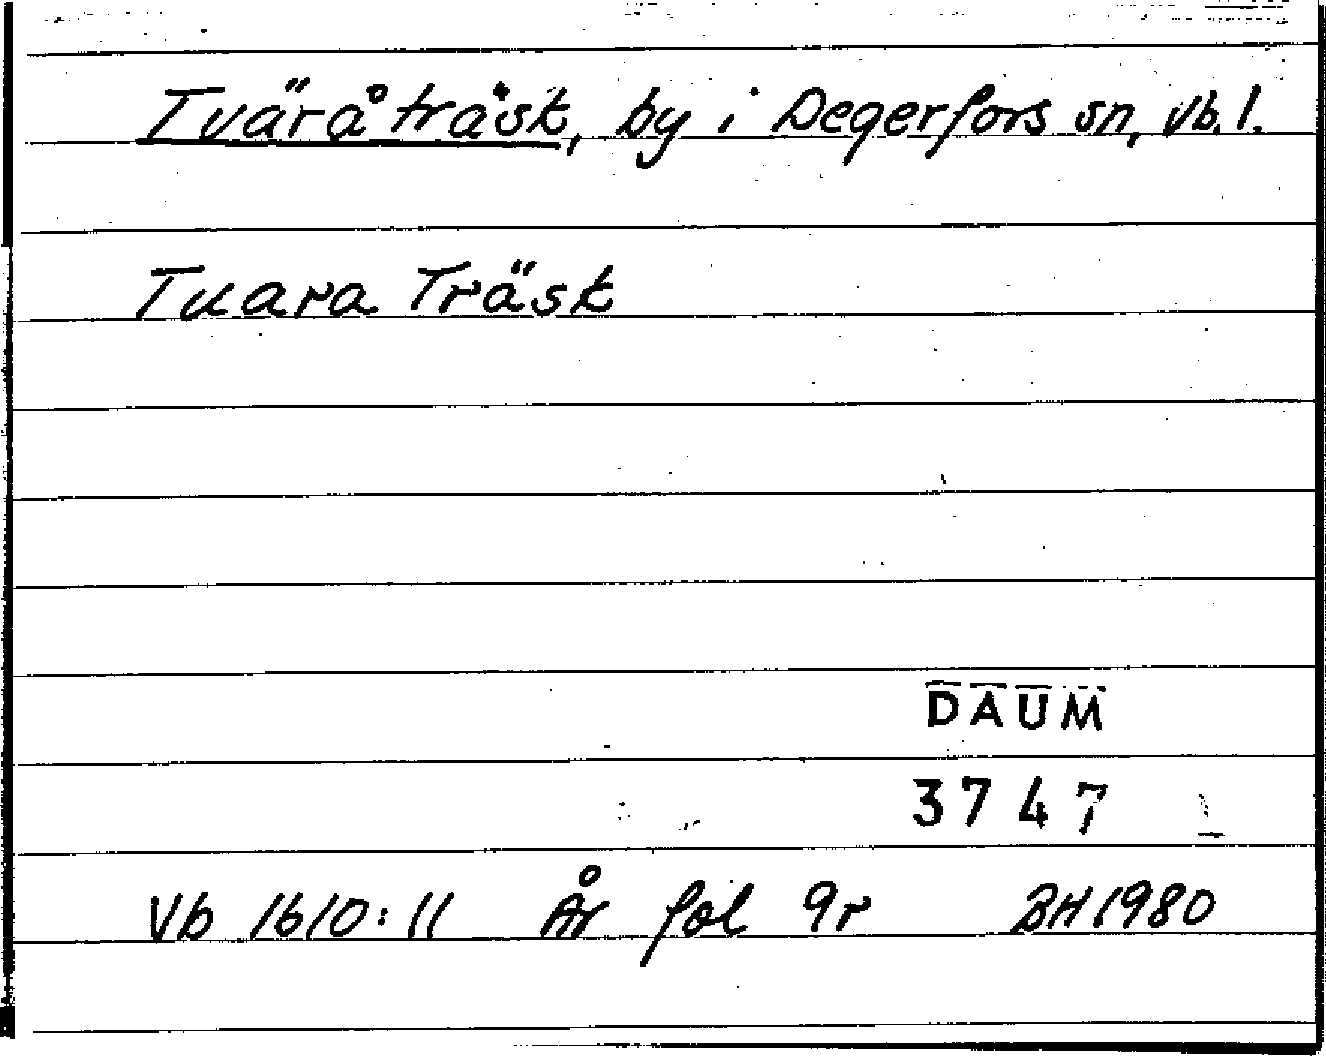 Tväråträsk, by i Degerfors sn, Vb. l.
Tuara Träsk
DAUM
3747
Vb 1610:11 År fol 9r BH 1980